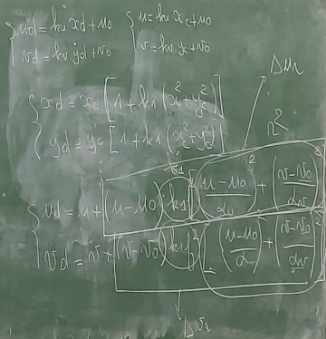 { ud = ku xd + u0    { u = ku xc + u0
{ vd = kv yd + v0    { v = kv yc + v0
Δu
{ xd = xc [ 1 + k1 (xc² + yc²) ]
{ yd = yc [ 1 + k1 (xc² + yc²) ]
r²
{ ud = u + (u - u0) k1 [ ( (u - u0) / αu )² + ( (v - v0) / αv )² ]
{ vd = v + (v - v0) k1 [ ( (u - u0) / α )² + ( (v - v0) / αv )² ]
Δv